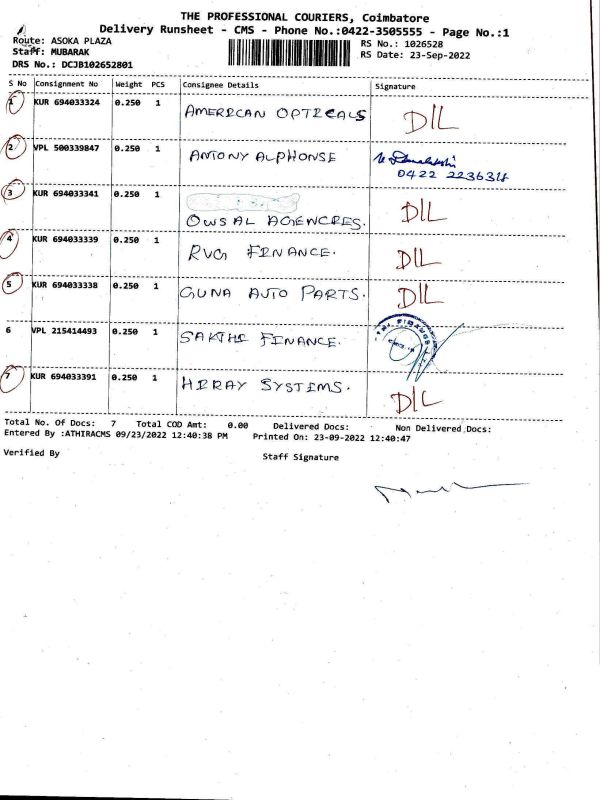 THE PROFESSIONAL COURIERS, Coimbatore
Delivery Runsheet - CMS - Phone No.:0422-3505555 - Page No.:1
Route: ASOKA PLAZA
Staff: MUBARAK
DRS No.: DCJB102652801
RS No.: 1026528
RS Date: 23-Sep-2022
S No Consignment No Weight PCS Consignee Details Signature
1 KUR 694033324 0.250 1 AMERICAN OPTICALS D/L
2 VPL 500339847 0.250 1 ANTONY ALPHONSE
0422 2236314
3 KUR 694033341 0.250 1 OWSAL AGENCIES. D/L
4 KUR 694033339 0.250 1 RVG FINANCE. D/L
5 KUR 694033338 0.250 1 GUNA AUTO PARTS. D/L
6 VPL 215414493 0.250 1 SAKTHI FINANCE.
7 KUR 694033391 0.250 1 HIRAY SYSTEMS. D/L
Total No. Of Docs: 7 Total COD Amt: 0.00 Delivered Docs: Non Delivered Docs:
Entered By :ATHIRACMS 09/23/2022 12:40:38 PM Printed On: 23-09-2022 12:40:47
Verified By Staff Signature